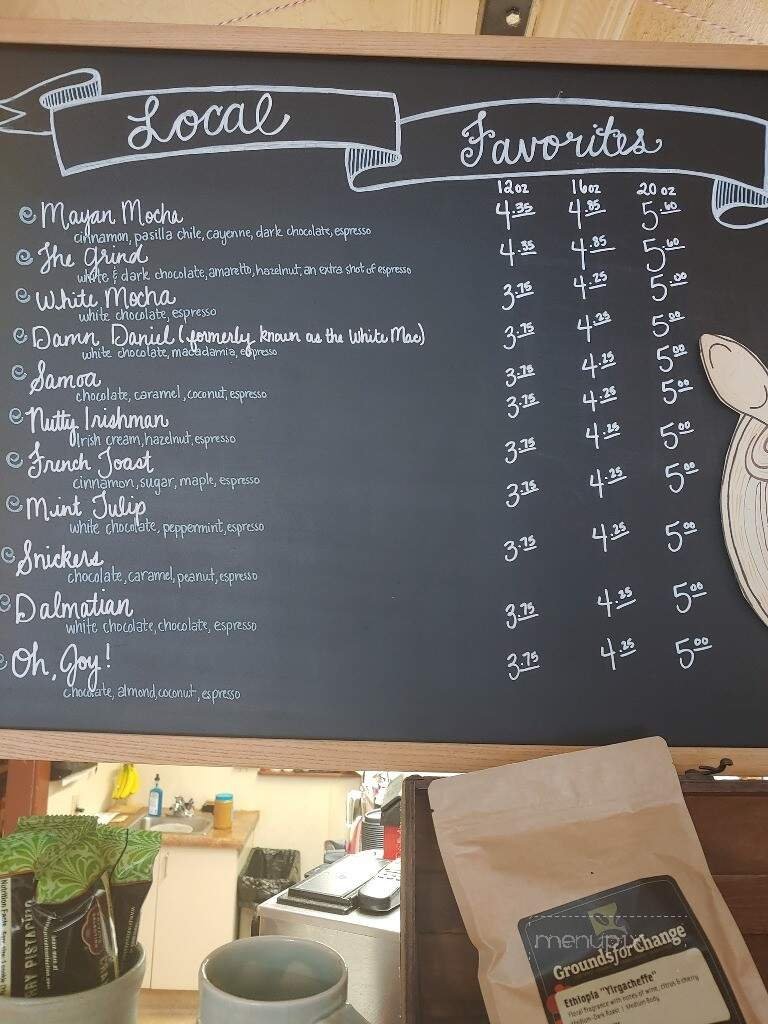 Local Favorites
12oz 16oz 20 oz
Mayan Mocha 4.35 4.85 5.60
cinnamon, pasilla chile, cayenne, dark chocolate, espresso
The Grind 4.35 4.85 5.60
white & dark chocolate, amaretto, hazelnut, an extra shot of espresso
White Mocha 3.75 4.25 5.00
white chocolate, espresso
Damn Daniel (formerly known as the White Mac) 3.75 4.25 5.00
white chocolate, macadamia, espresso
Samoa 3.75 4.25 5.00
chocolate, caramel, coconut, espresso
Nutty Irishman 3.75 4.25 5.00
Irish cream, hazelnut, espresso
French Toast 3.75 4.25 5.00
cinnamon, sugar, maple, espresso
Mint Julip 3.75 4.25 5.00
white chocolate, peppermint, espresso
Snickers 3.75 4.25 5.00
chocolate, caramel, peanut, espresso
Dalmatian 3.75 4.25 5.00
white chocolate, chocolate, espresso
Oh, Joy! 3.75 4.25 5.00
chocolate, almond, coconut, espresso
menupix
Grounds for Change
Ethiopia "Yirgacheffe"
Floral fragrance with notes of wine, citrus & cherry
Medium-Dark Roast | Medium Body
Nutrition Facts
PISTACHIO